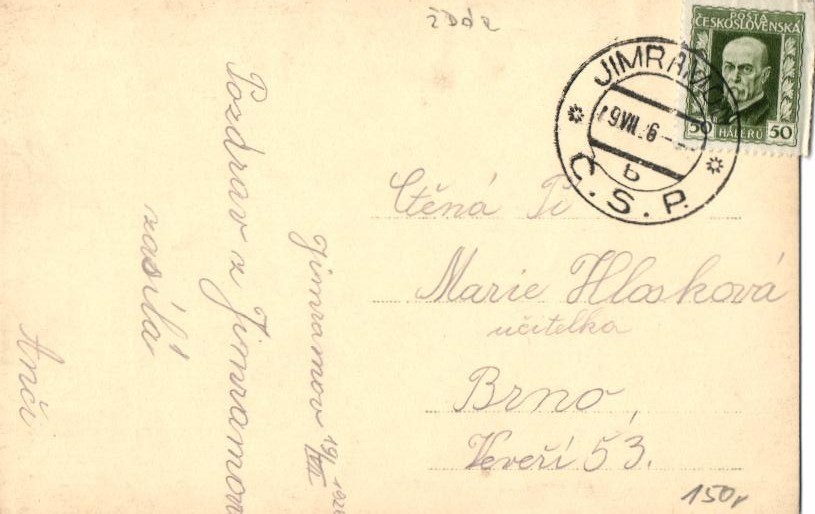 ŽĎÁR
POŠTA
ČESKOSLOVENSKÁ
50 HALÉŘŮ 50
JIMRAMOV
b
Č.S.P.
Pozdrav z Jimramova
zasílá
Anči
Jimramov 19/VII 1926
Ctěná Pí
Marie Hlosková
učitelka
Brno,
Veveří 53.
150,